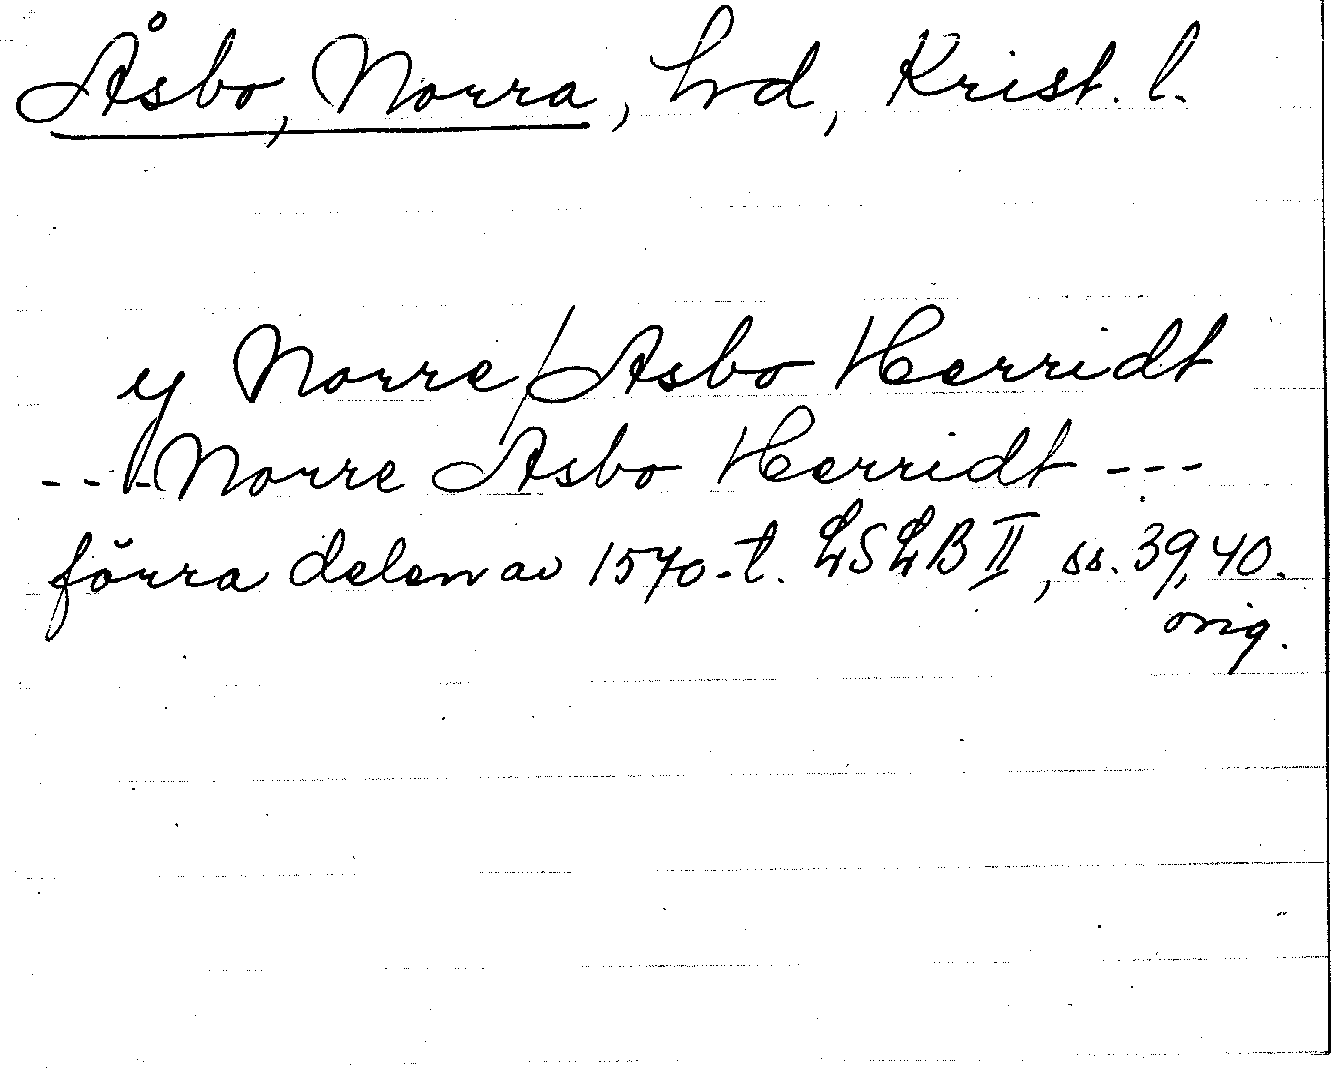 Åsbo, Norra, hrd, Krist. l.
y Norre/Asbo Herridt
--- Norre Asbo Herridt ---
förra delen av 1570-t. LSLB II, ss. 39, 40.
orig.